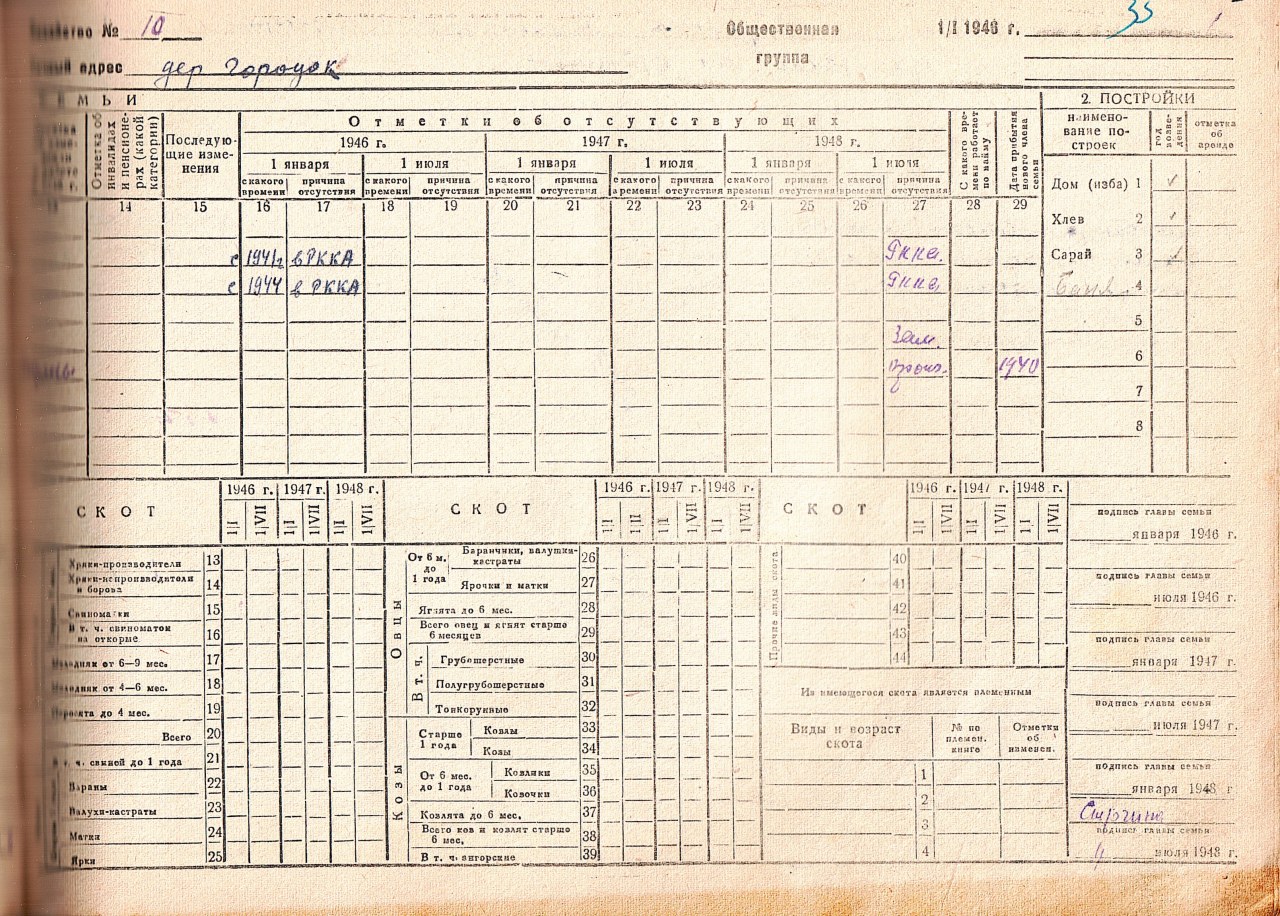 № 10 Общественная 1/I 1946 г. 33
группа
адрес дер Городок
2. ПОСТРОЙКИ
Отметка об инвалидах и пенсионерах (какой категории)
Последующие изменения
Отметки об отсутствующих
1946 г. 1947 г. 1948 г.
1 января 1 июля 1 января 1 июля 1 января 1 июля
с какого времени причина отсутствия с какого времени причина отсутствия с какого времени причина отсутствия с какого времени причина отсутствия с какого времени причина отсутствия с какого времени причина отсутствия
С какого времени работает по найму
Дата прибытия нового члена семьи
наименование построек
год возведения
отметка об аренде
14 15 16 17 18 19 20 21 22 23 24 25 26 27 28 29
Дом (изба) 1 ✓
Хлев 2 ✓
с 1941г в РККА
Сарай 3 ✓
с 1944 в РККА
Баня 4
5
Зам.
6
1940
7
8
СКОТ 1946 г. 1947 г. 1948 г. СКОТ 1946 г. 1947 г. 1948 г. СКОТ 1946 г. 1947 г. 1948 г.
1|I 1|VII 1|I 1|VII 1|I 1|VII 1|I 1|II 1|I 1|VII 1|I 1|VII 1|I 1|VII 1|I 1|VII 1|I 1|VII
Хряки-производители 13
Хряки-непроизводители и борова 14
Свиноматки 15
В т. ч. свиноматок на откорме 16
Молодняк от 6—9 мес. 17
Молодняк от 4—6 мес. 18
Поросята до 4 мес. 19
Всего 20
В т. ч. свиней до 1 года 21
Бараны 22
Валухи-кастраты 23
Матки 24
Ярки 25
Овцы
От 6 м. до 1 года
Баранчики, валушки-кастраты 26
Ярочки и матки 27
Ягнята до 6 мес. 28
Всего овец и ягнят старше 6 месяцев 29
В т. ч.
Грубошерстные 30
Полугрубошерстные 31
Тонкорунные 32
Козы
Старше 1 года
Козлы 33
Козы 34
От 6 мес. до 1 года
Козлики 35
Козочки 36
Козлята до 6 мес. 37
Всего коз и козлят старше 6 мес. 38
В т. ч. ангорские 39
Прочие виды скота
40
41
42
43
44
Из имеющегося скота является племенным
Виды и возраст скота
№ по племен. книге
Отметки об изменен.
1
2
3
4
подпись главы семьи
января 1946 г.
подпись главы семьи
июля 1946 г.
подпись главы семьи
января 1947 г.
подпись главы семьи
июля 1947 г.
подпись главы семьи
января 1948 г
подпись главы семьи
июля 1948 г.